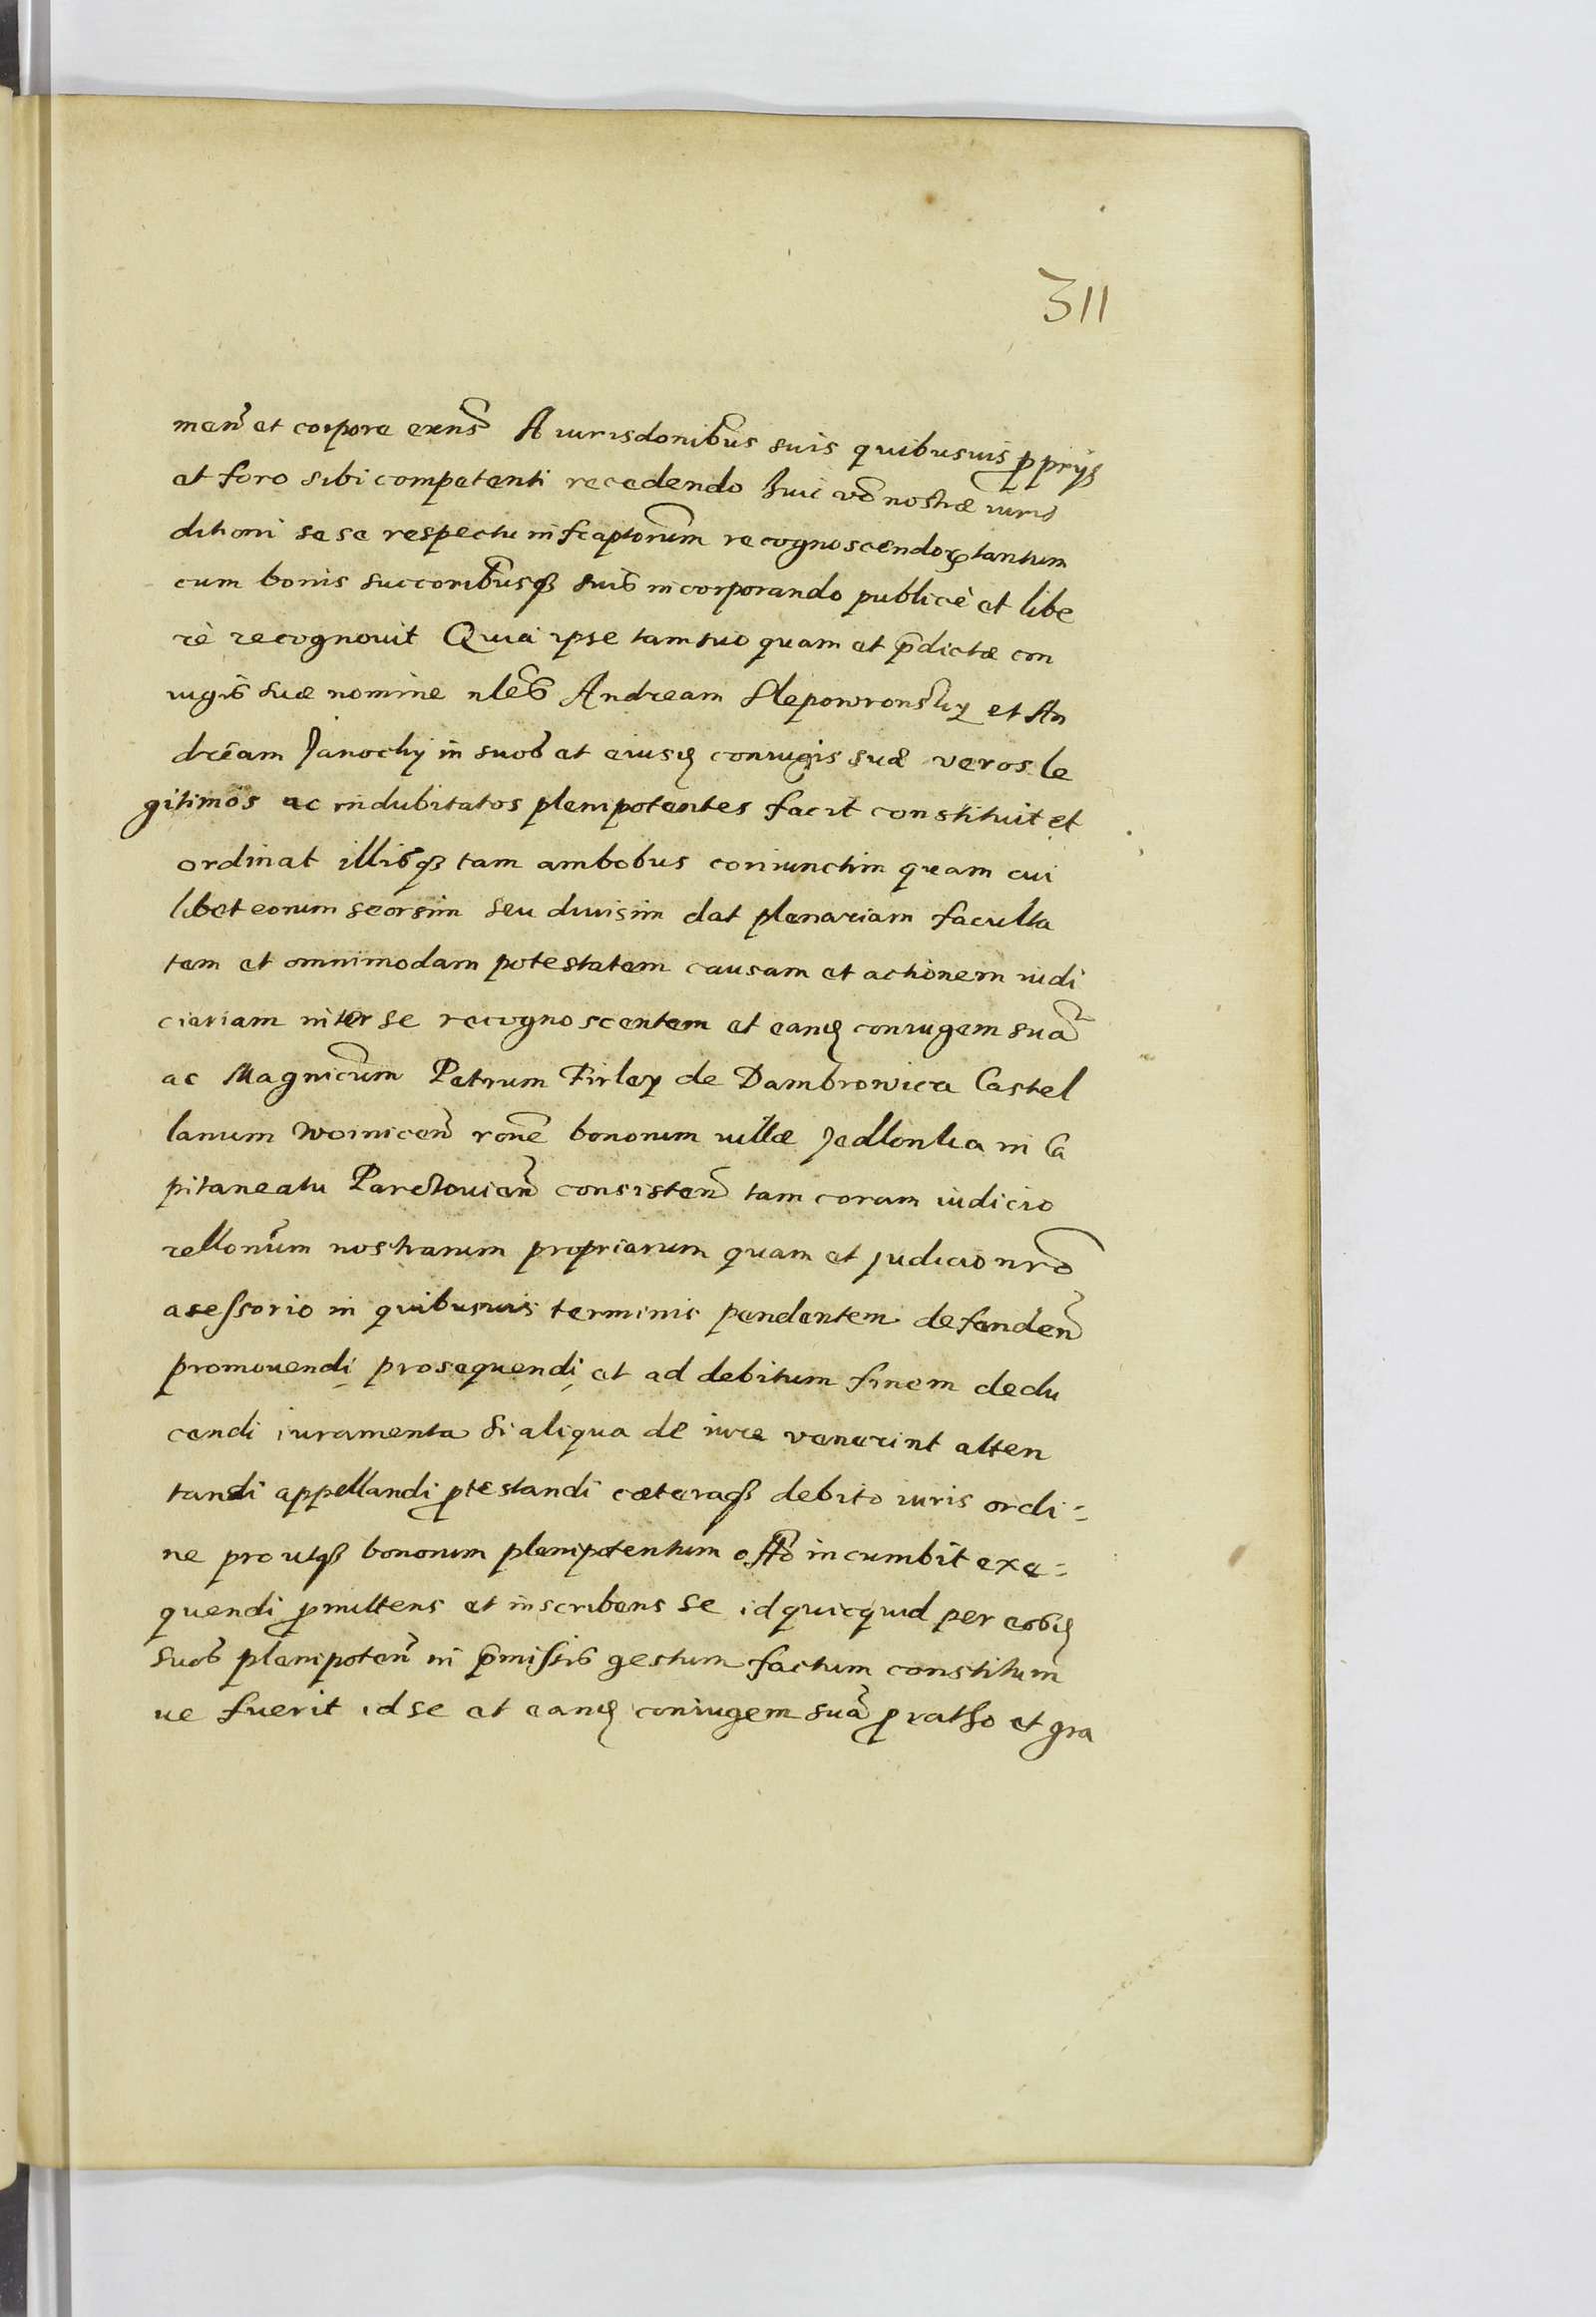 311
men̄ et corpore exn̄s A iurisdonibus suis quibusuis ppriis
et foro sibi competenti recedendo huic vō nostræ iuris
dictioni sese respectu infrascptorum recognoscendor tantum
cum bonis succoribusq suis incorporando publicè et libe
rè recognouit Quia ipse tam suo quam et pdictæ con
iugis suæ nomine nles Andream Sleporwronsky et An
dream Janochy in suos et eiusd coniugis suæ veros le
gitimos ac indubitatos plenipotentes facit constituit et
ordinat illisq tam ambobus coniunctim quam cui
libet eorum seorsim seu diuisim dat plenariam faculta
tem et omnimodam potestatem causam et actionem iudi
ciariam inter se recognoscentem et eand coniugem suā
ac Magnicum Petrum Firley de Dambrowica Castel
lanum Woinicen̄ ronē bonorum villæ Jedlonka in Ca
pitaneatu Parczouien̄ consisten̄ tam coram iudicio
rellonum nostrarum propriarum quam et judicio nrō
asessorio in quibusuis terminis pendentem defenden̄
promouendi prosequendi et ad debitum finem dedu
cendi iuramenta si aliqua de iure venerint atten
tandi appellandi ptestandi cæteraq debito iuris ordi=
ne pro utq bonorum plenipotentum offō incumbit exe=
quendi pmittens et inscribens se id quicquid per eosd
suos plenipoten̄ in pmissis gestum factum constitum
ue fuerit id se et eand coniugem suā p ratho et gra